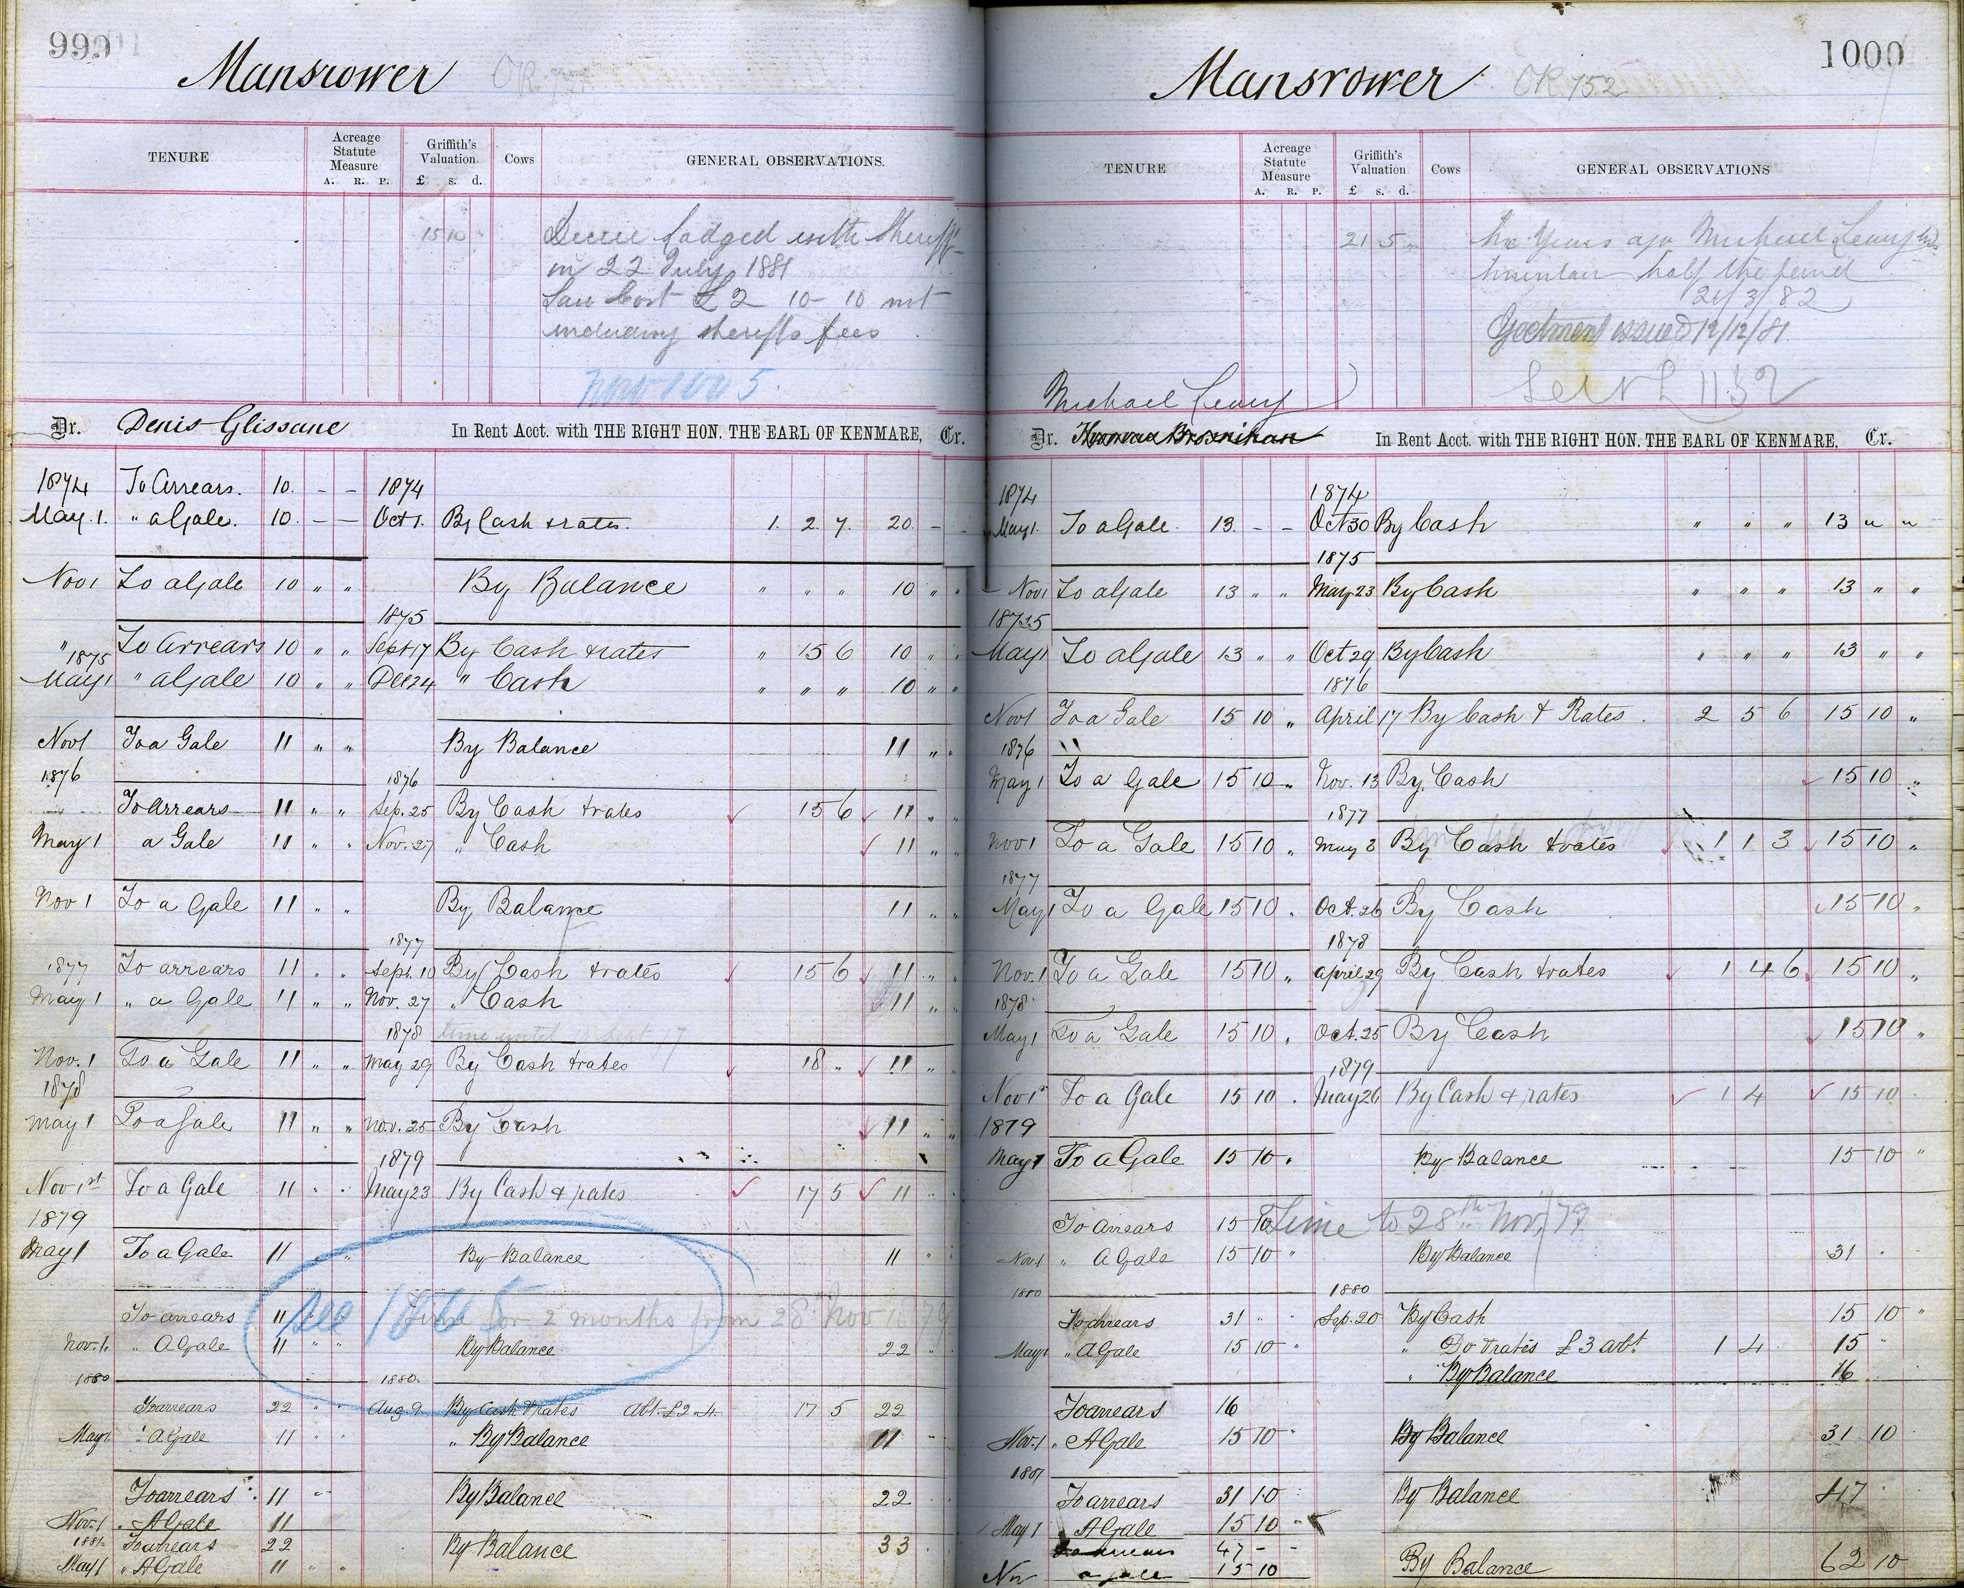 999
Mansrower
TENURE Acreage Statute Measure A. R. P. Griffith's Valuation £ s. d. Cows GENERAL OBSERVATIONS.
15 10 Decree lodged with Sheriff
on 22 July 1881
Law Cost £2 10-10 not
including sheriffs fees
Dr. Denis Glissane In Rent Acct. with THE RIGHT HON. THE EARL OF KENMARE, Cr.
1874 To Arrears. 10. - - 1874
May 1. " a Gale. 10. - - Oct 1. By Cash & rates. 1. 2. 7. 20 - -
Nov 1 To a Gale 10 " " By Balance " " " 10 " "
1875
" To Arrears 10 " " Sept 17 By Cash & rates " 15 6 10 " "
1875
May 1 " a Gale 10 " " Dec 24 " Cash " " " 10 " "
Nov 1 To a Gale 11 " " By Balance 11 " "
1876 1876
To Arrears 11 " " Sep. 25 By Cash & rates 15 6 11 " "
May 1 a Gale 11 " " Nov. 27 " Cash 11 " "
Nov 1 To a Gale 11 " " By Balance 11 " "
1877
1877 To arrears 11 " " Sept. 10 By Cash & rates 15 6 11 " "
May 1 " a Gale 11 " " Nov. 27 " Cash 11 " "
1878 time until Sept
Nov. 1 To a Gale 11 " " May 29 By Cash & rates 18 " 11 " "
1878
May 1 To a Gale 11 " " Nov. 25 By Cash 11 " "
1879
Nov 1st To a Gale 11 " " May 23 By Cash & rates 17 5 11 "
1879
May 1 To a Gale 11 " " By Balance 11 "
see 1005
To arrears 11 Time for 2 months from 28th Nov 1879
Nov. 1. " A Gale 11 " " By Balance 22 "
1880 1880.
To arrears 22 " " Aug 9 By Cash & rates Abt. £2.4. 17 5 22
May 1. " A Gale 11 " " " By Balance 11 "
To arrears 11 " By Balance 22
Nov. 1 " A Gale 11
1881 To arrears 22 By Balance 33
May 1 " A Gale 11 " "
1000
Mansrower OR 752
TENURE Acreage Statute Measure A. R. P. Griffith's Valuation £ s. d. Cows GENERAL OBSERVATIONS
21 5 Years ago Michael Leary
half the
21/3/82
Ejectment issued 12/12/81
Michael Leary
Dr. Brosnihan In Rent Acct. with THE RIGHT HON. THE EARL OF KENMARE, Cr.
1874 1874
May 1. To a Gale. 13. - - Oct 30 By Cash " " " 13 " "
1875
Nov 1 To a Gale 13 " " May 23 By Cash " " " 13 " "
1875
May 1 To a Gale 13 " " Oct 29 By Cash " " " 13 " "
1876
Nov 1 To a Gale 15 10 " April 17 By Cash & Rates. 2 5 6 15 10 "
1876
May 1 To a Gale 15 10 " Nov. 13 By Cash 15 10 "
1877
Nov 1 To a Gale 15 10 " May 2 By Cash & rates 1 1 3 15 10 "
1877
May 1 To a Gale 15 10 " Oct. 26 By Cash 15 10 "
1878
Nov. 1 To a Gale 15 10 " April 29 By Cash & rates 1 4 6 15 10 "
1878
May 1 To a Gale 15 10 " Oct. 25 By Cash 15 10 "
1879
Nov 1st To a Gale 15 10 " May 26 By Cash & rates 1 4 15 10
1879
May 1 To a Gale 15 10 " By Balance 15 10 "
To Arrears 15 10 Time to 28th Nov. 79
Nov. 1 " A Gale 15 10 " By Balance 31
1880 1880
To arrears 31 " " Sep. 20 By Cash 15 10 "
May 1 " A Gale 15 10 " " Do & rates £3 abt. 1 4 15 "
" By Balance 16
To arrears 16
Nov. 1 " A Gale 15 10 " By Balance 31 10
1881
To arrears 31 10 By Balance 47
May 1 A Gale 15 10 "
To arrears 47 - -
Nov a gale 15 10 By Balance 62 10